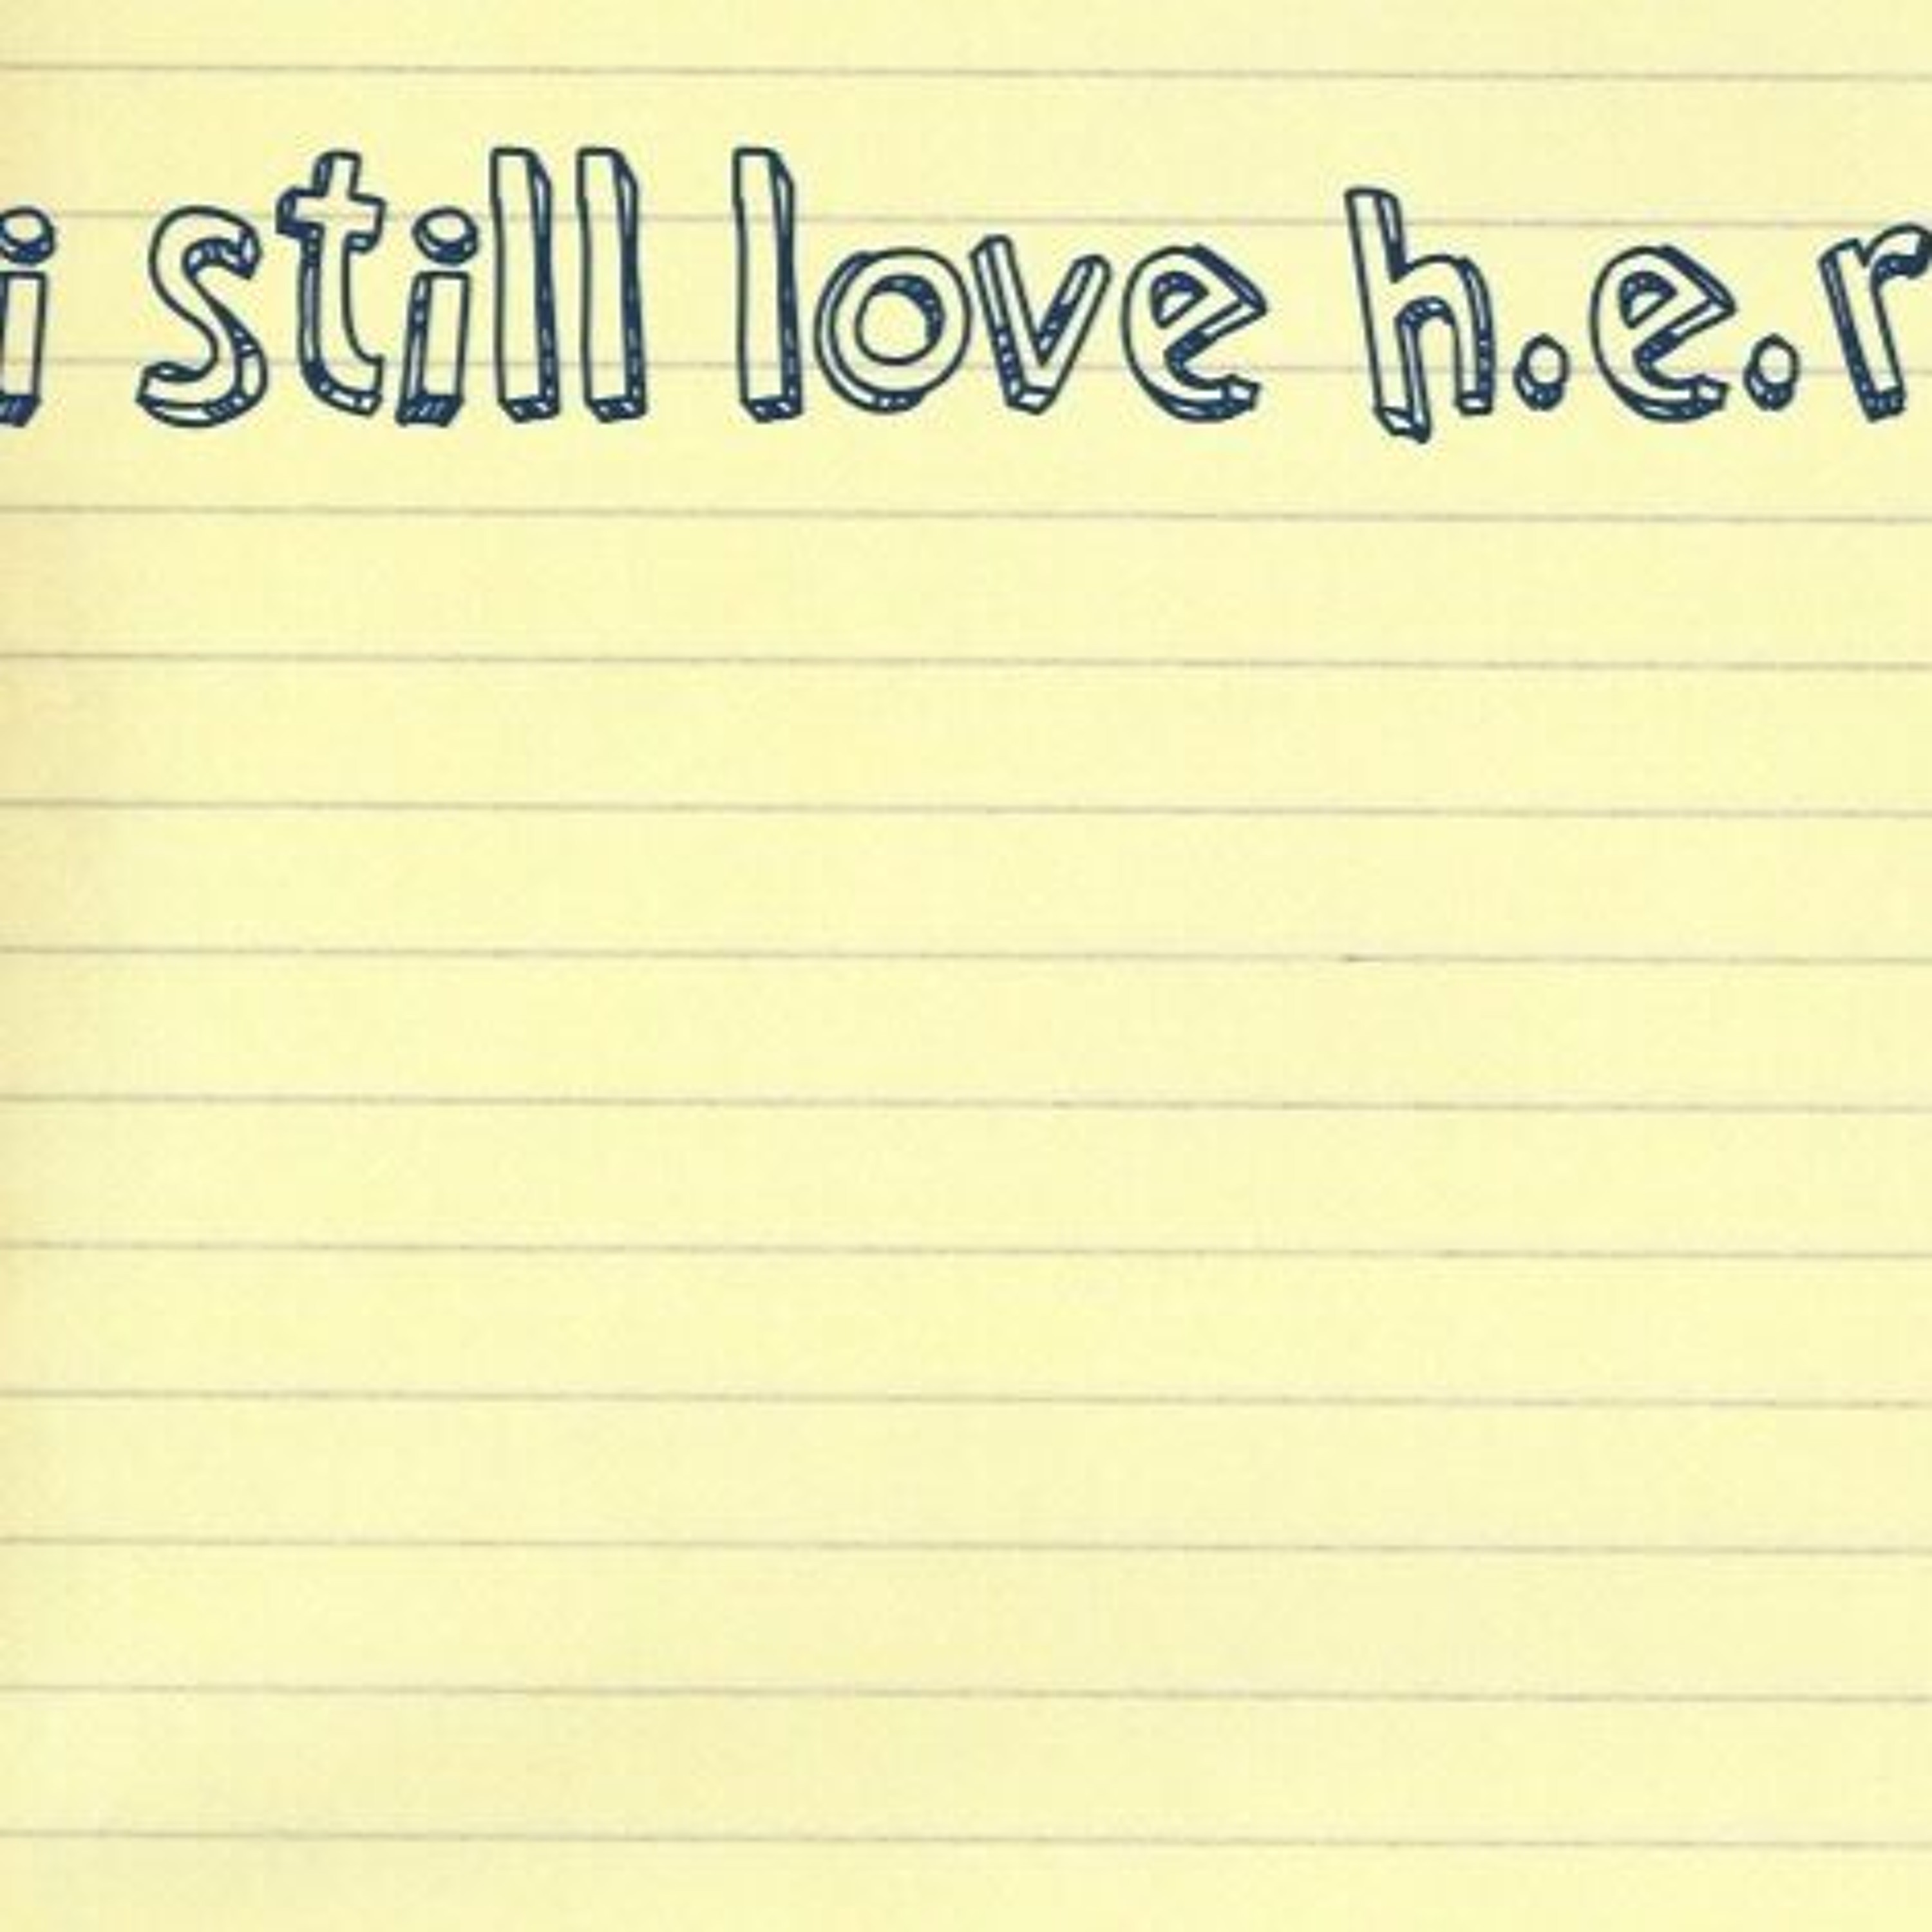 i still love h.e.r